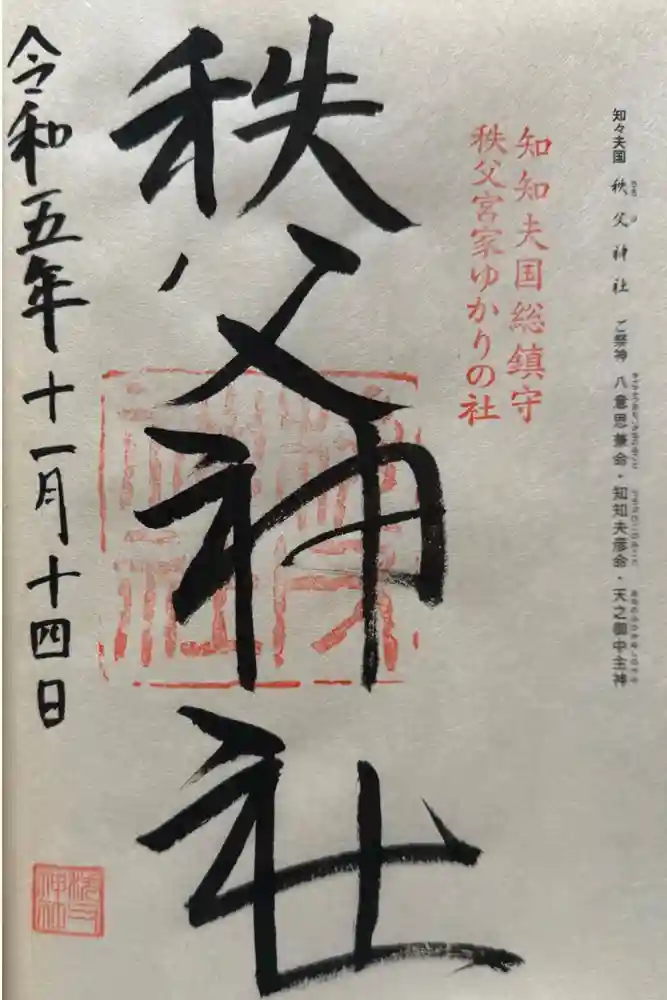 知々夫国 秩父神社 ご祭神 八意思兼命・知知夫彦命・天之御中主神
知知夫国総鎮守
秩父宮家ゆかりの社
秩父神社
令和五年十一月十四日